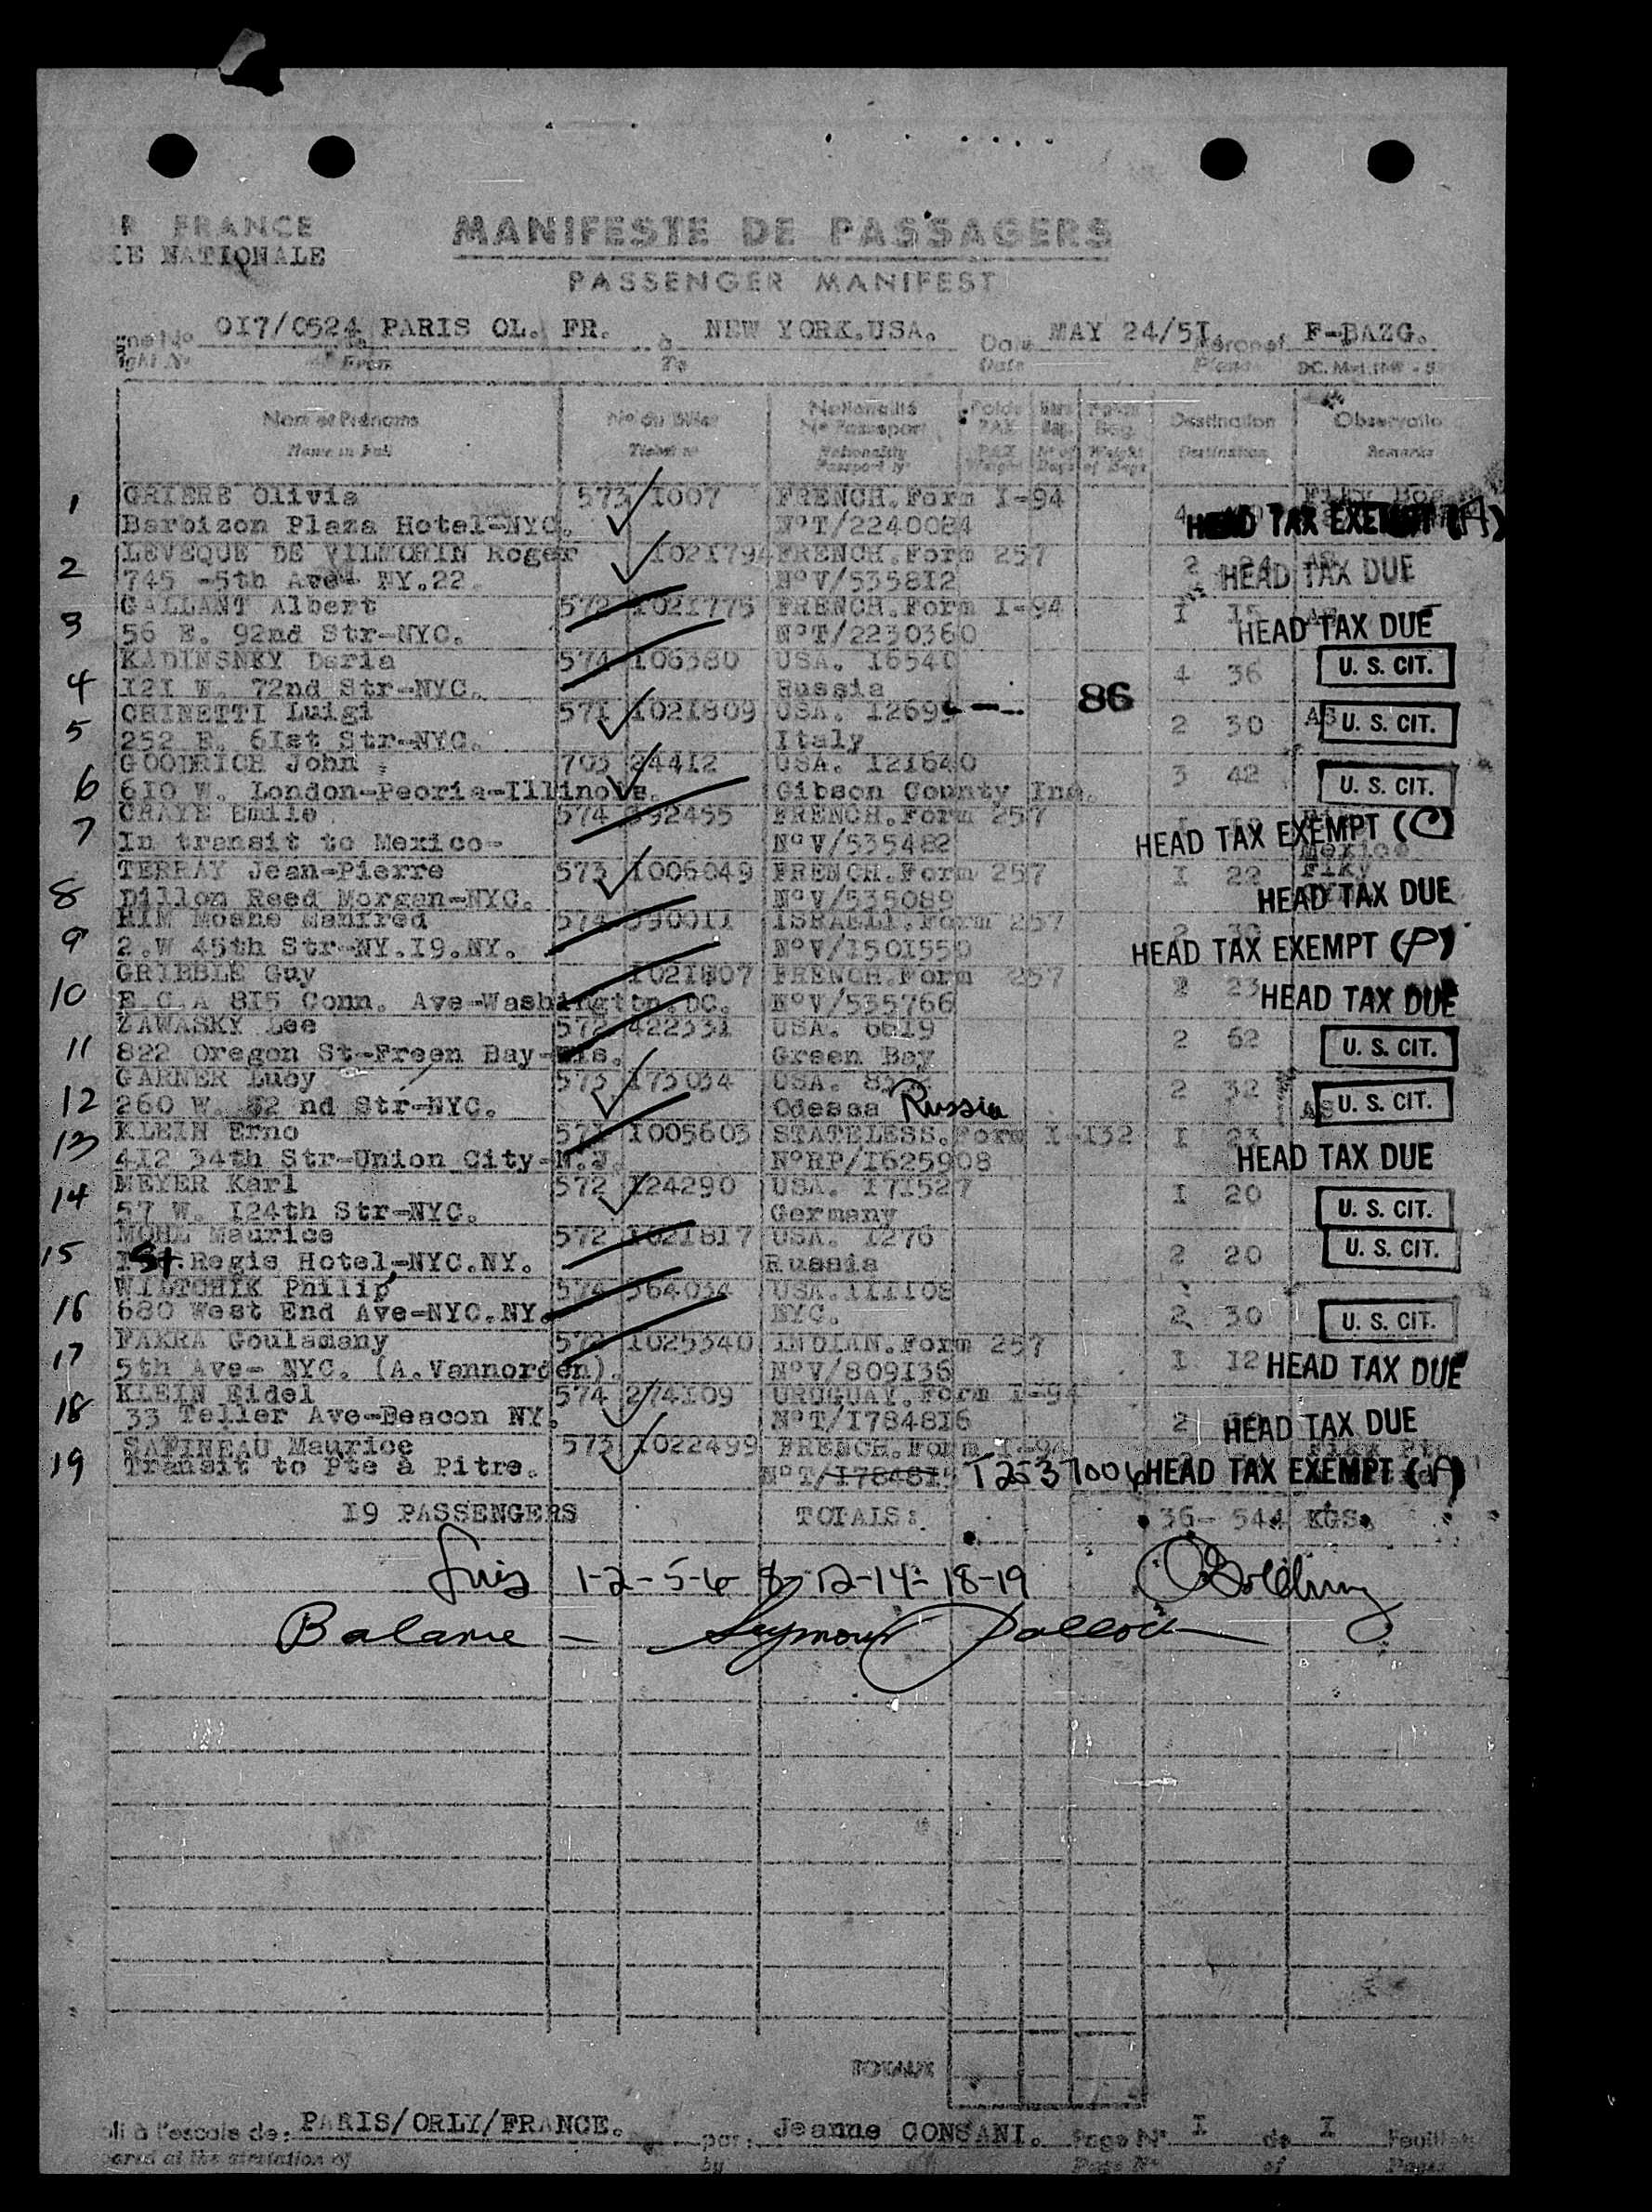 R FRANCE
IE NATIONALE
MANIFESTE DE PASSAGERS
PASSENGER MANIFEST
OI7/0524 PARIS OL. FR. à NEW YORK.USA. Date MAY 24/5I F-BAZG.
From To Date
Nom et Prénoms N° du Billet Nationalité N° Passeport Destination
Name in Full Ticket n° Nationality Destination Remarks
1 GRIERE Olivia 573 I007 FRENCH.Form I-94
Barbizon Plaza Hotel-NYC. N°T/2240084 4 HEAD TAX EXEMPT (A)
2 LEVEQUE DE VILMORIN Roger I02I794 FRENCH.Form 257
745 -5th Ave- NY.22. N°V/5358I2 2 24 HEAD TAX DUE
3 GALLANT Albert 572 I02I775 FRENCH.Form I-94
56 E. 92nd Str-NYC. N°T/2230360 I I5 HEAD TAX DUE
4 KADINSNKY Daria 574 I06380 USA. I6540
I2I W. 72nd Str-NYC. Russia 4 36 U. S. CIT.
5 CHINETTI Luigi 571 I02I809 USA. I269 86
252 E. 6Ist Str-NYC. Italy 2 30 AS U. S. CIT.
6 GOODRICH John 703 24412 USA. I2I640
6I0 W. London-Peoria-Illinois. Gibson County Ind. 3 42 U. S. CIT.
7 CRAYE Emile 574 392455 FRENCH.Form 257
In transit to Mexico- N°V/535482 HEAD TAX EXEMPT (C) Mexico
8 TERRAY Jean-Pierre 573 I006049 FRENCH.Form 257
Dillon Reed Morgan-NYC. N°V/535089 I 22 HEAD TAX DUE
9 RIM Moshe Manfred 574 3900II ISRAELI.Form 257
2.W 45th Str-NY.I9.NY. N°V/I50I550 HEAD TAX EXEMPT (P)
10 GRIBBLE Guy I02I807 FRENCH.Form 257
E.C.A 8I5 Conn. Ave-Washington.DC. N°V/535766 2 23 HEAD TAX DUE
11 ZAWASKY Lee 572 42233I USA. 66I9
822 Oregon St-Freen Bay-Wis. Green Bay 2 62 U. S. CIT.
12 GARNER Lucy 573 I73034 USA.
260 W. 82 nd Str-NYC. Odessa Russia 2 32 AS U. S. CIT.
13 KLEIN Erno 571 I005603 STATELESS.Form I-I32 I 23
4I2 34th Str-Union City-N.J. N°RP/I625908 HEAD TAX DUE
14 MEYER Karl 572 I24290 USA. I7I527
57 W. I24th Str-NYC. Germany I 20 U. S. CIT.
15 MOHL Maurice 572 I02I8I7 USA. I276
St.Regis Hotel-NYC.NY. Russia 2 20 U. S. CIT.
16 WILTCHIK Philip 574 364034 USA.III108
680 West End Ave-NYC.NY. NYC. 2 30 U. S. CIT.
17 FAKRA Goulamany 572 I025340 INDIAN.Form 257
5th Ave- NYC. (A.Vannorden). N°V/809I36 I I2 HEAD TAX DUE
18 KLEIN Eidel 574 274I09 URUGUAY.Form I-94
33 Teller Ave-Beacon NY. N°T/I7848I6 2 HEAD TAX DUE
19 SAPINEAU Maurice 573 I022499 FRENCH.Form I-94
Transit to Pte à Pitre. N°T/I7848I5 T2537006 HEAD TAX EXEMPT (A)
I9 PASSENGERS TOTALS: 36- 544 KGS.
1-2-5-6 8-12-14-18-19
Balance - Seymour Pollock
TOTAUX
à l'escale de: PARIS/ORLY/FRANCE. par: Jeanne CONSANI. Page N° I de I Feuillets
by Page N° of Pages